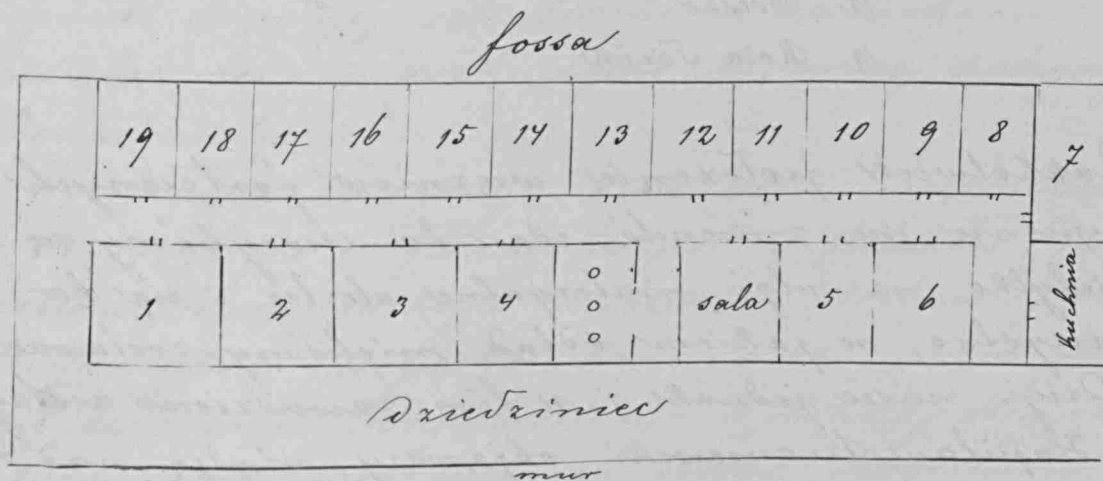 fossa
19 18 17 16 15 14 13 12 11 10 9 8 7
1 2 3 4 sala 5 6 kuchnia
Dziedziniec
mur